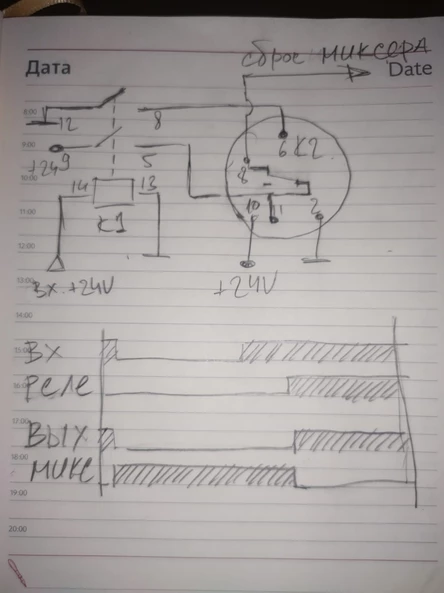 сброс миксера
Дата
Date
8:00
12
8
6
K2
+24
9
9:00
5
8
10:00
14
13
10
11
2
11:00
K1
12:00
вх +24V
+24V
13:00
14:00
ВХ
15:00
РЕЛЕ
16:00
17:00
ВЫХ
18:00
МИКС
19:00
20:00